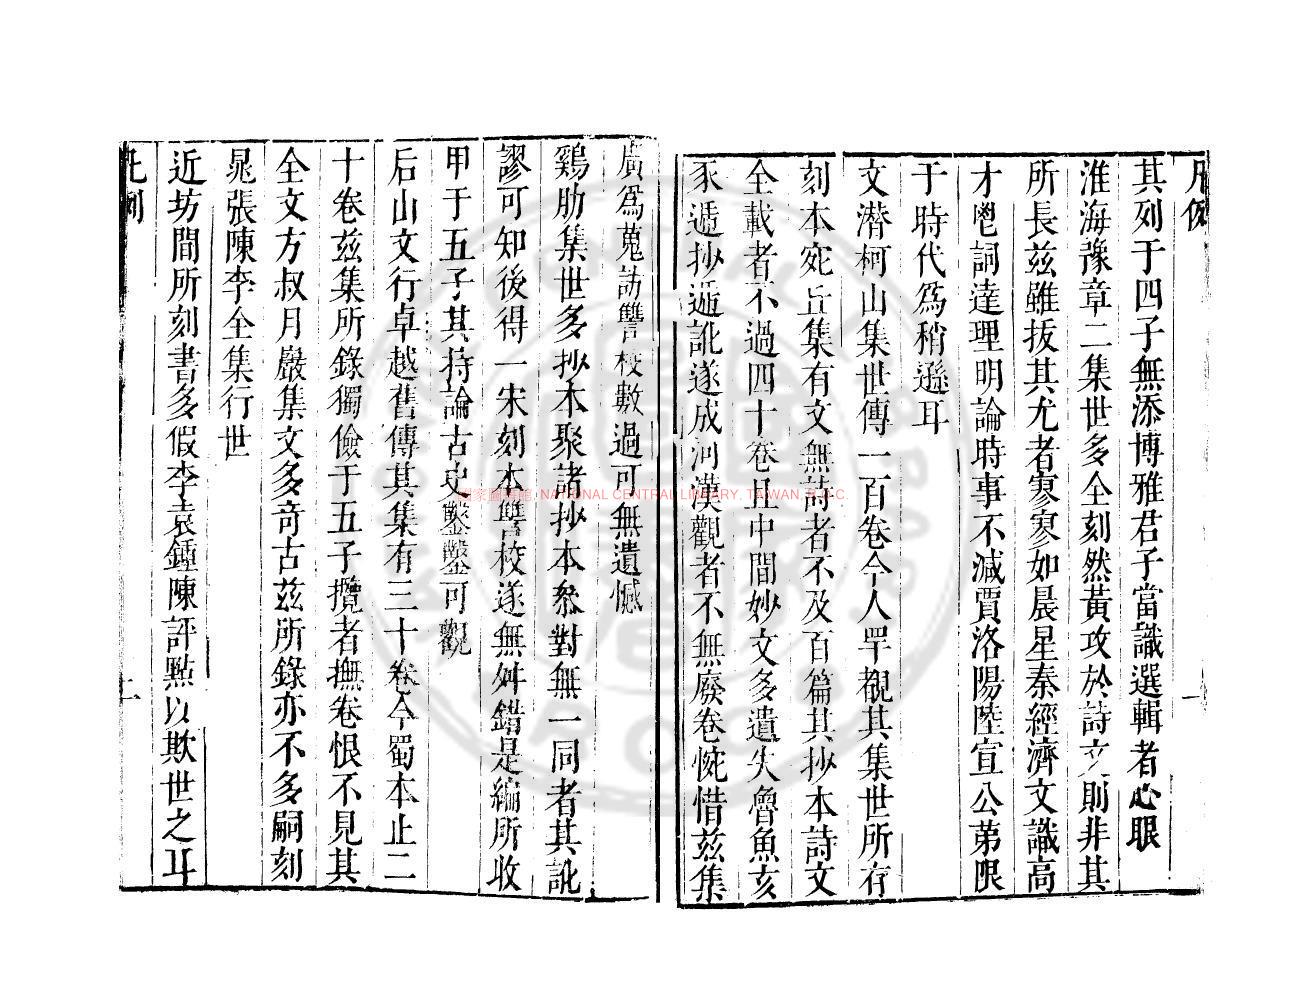 凡例
其列于四子無添博雅君子當識選輯者心眼
淮海豫章二集世多全刻然黃攻於詩文則非其
所長茲雖拔其尤者寥寥如晨星秦經濟文識高
才鬯詞達理明論時事不減賈洛陽陸宣公第限
于時代為稍遜耳
文潛柯山集世傳一百卷今人罕覩其集世所存
刻本宛丘集有文無詩者不及百篇其抄本詩文
全載者不過四十卷且中間妙文多遺失魯魚亥
豕遞抄遞訛遂成河漢觀者不無廢卷惋惜茲集
一
廣為蒐訪讐校數過可無遺憾
鷄肋集世多抄本聚諸抄本叅對無一同者其訛
謬可知後得一宋刻本讐校遂無舛錯是編所收
甲于五子其持論古史鑿鑿可觀
后山文行卓越舊傳其集有三十卷今蜀本止二
十卷茲集所錄獨儉于五子攬者撫卷恨不見其
全文方叔月巖集文多奇古茲所錄亦不多嗣刻
晁張陳李全集行世
近坊間所刻書多假李袁鍾陳評點以欺世之耳
凡例
二
國家圖書館 NATIONAL CENTRAL LIBRARY, TAIWAN, R.O.C.